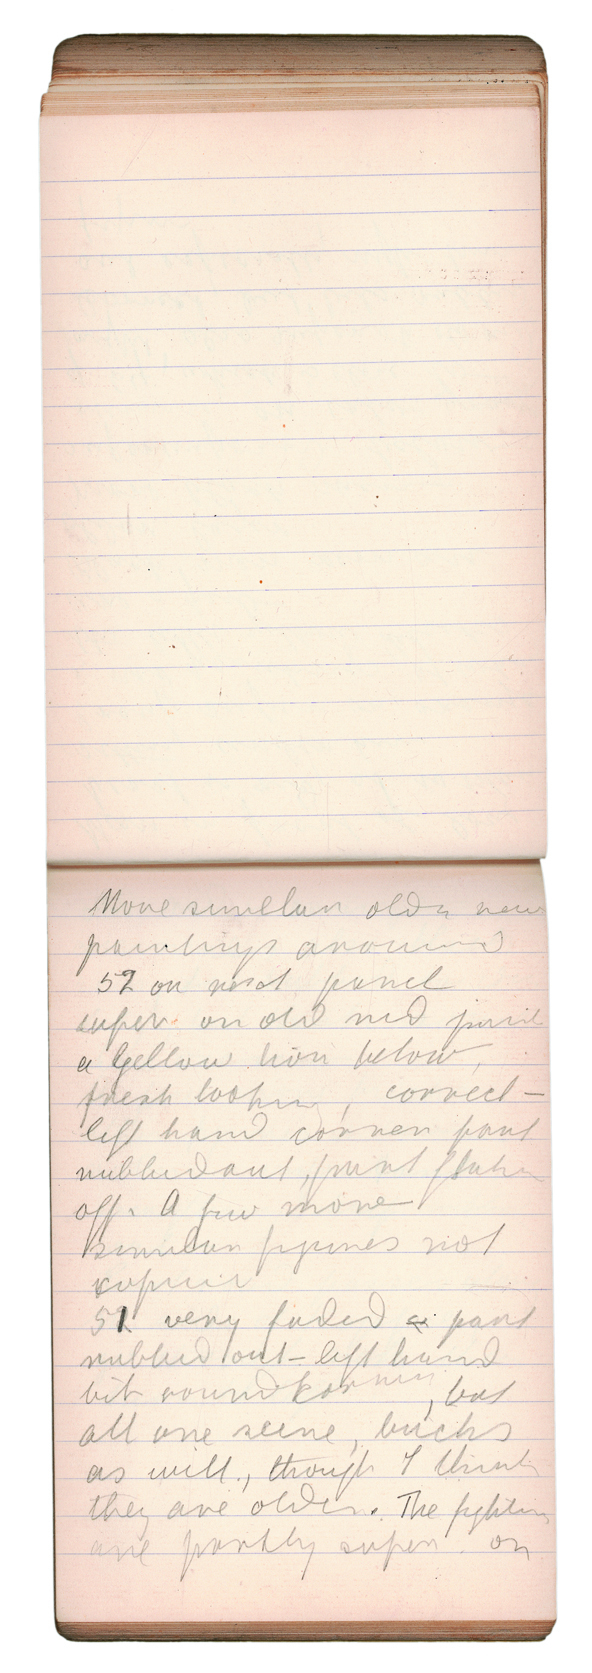 More similar older new
paintings around
52 on next panel
super on old red paint
a yellow lion below,
fresh looking, correct –
left hand corner part
rubbed out, paint flaking
off. A few more
similar figures not
copied
51 very faded & part
rubbed out – left hand
bit round corner, but
all one scene, bucks
as well, though I think
they are older. The fighters
are partly super on